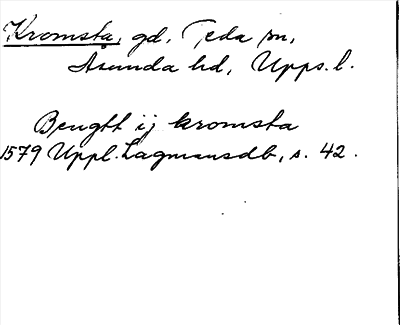 Kromsta, gd, Teda sn,
Åsunda hd, Upps. l.
Bengtt ij kromsta
1579 Uppl. Lagmansdb, s. 42.